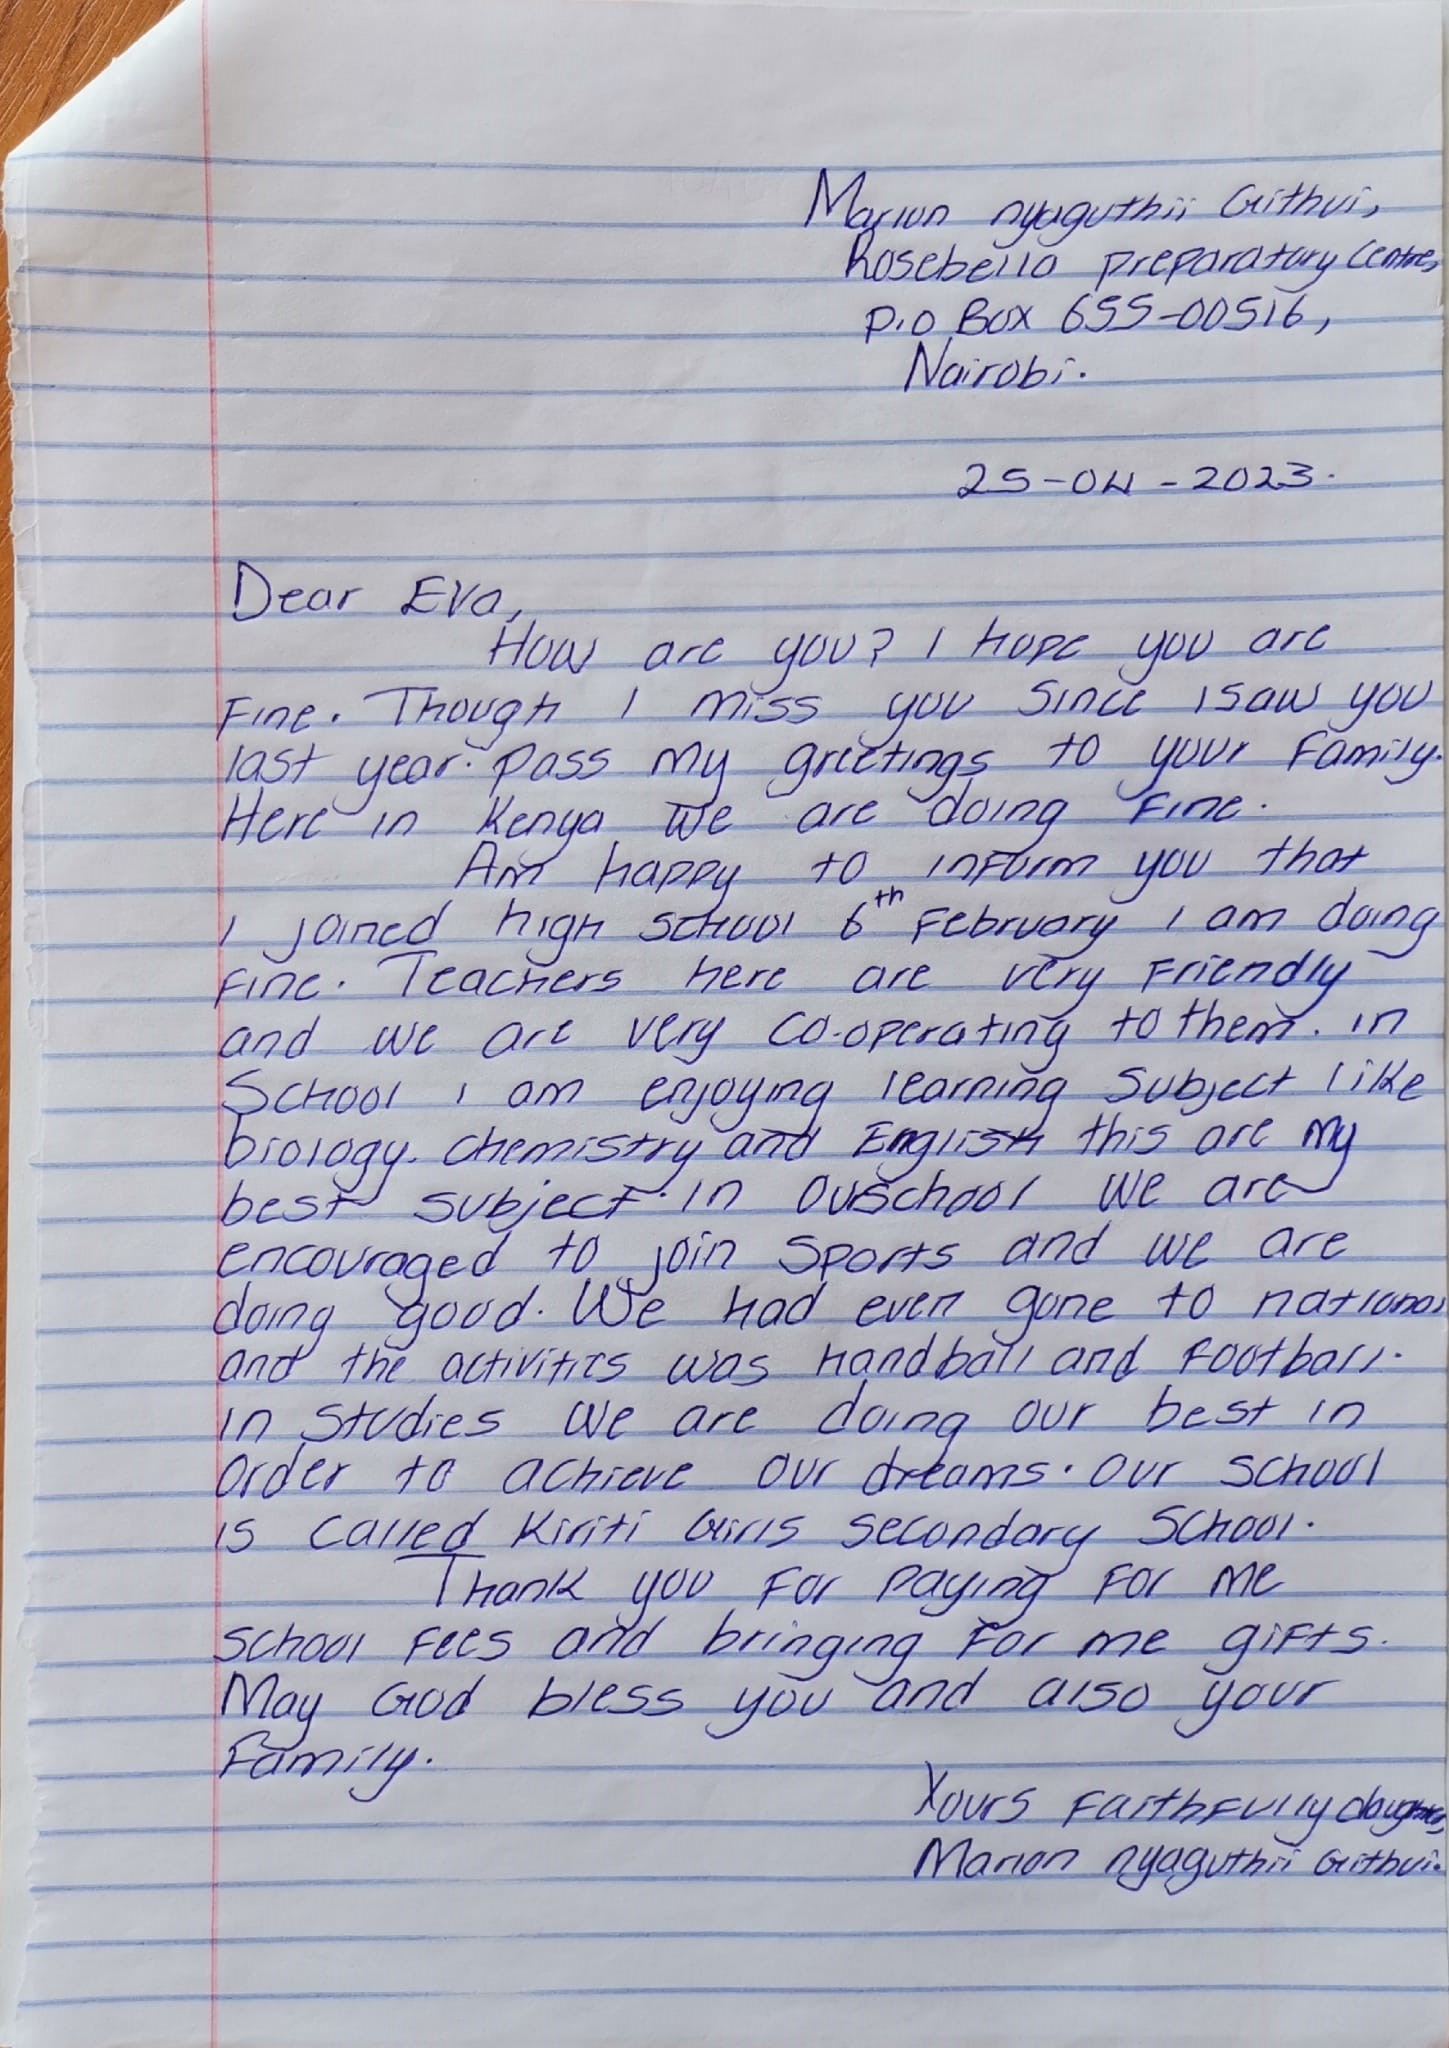 Marion nyaguthii Githui,
Rosebella preparatory Centre,
P.O Box 655-00516,
Nairobi.
25-04-2023.
Dear Eva,
How are you? I hope you are
Fine. Though I miss you since I saw you
last year. Pass my greetings to your Family.
Here in Kenya we are doing Fine.
Am happy to inform you that
I joined high school 6th February I am doing
Fine. Teachers here are very Friendly
and we are very co-operating to them. in
School I am enjoying learning Subject like
biology. chemistry and English this are my
best subject. In our school we are
encouraged to join sports and we are
doing good. We had even gone to national
and the activities was handball and Football.
in studies we are doing our best in
order to achieve our dreams. Our school
is called Kiriti Girls secondary School.
Thank you For paying For me
school Fees and bringing For me gifts.
May God bless you and also your
Family.
Yours Faithfully daughter,
Marion nyaguthii Githui.